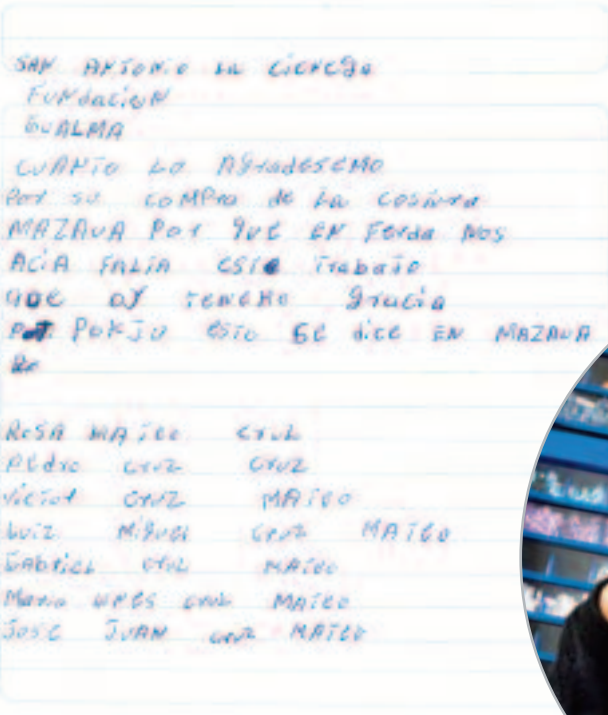 SAN ANTONIO LA CIENEGA
FUNDACION
GUALMA
CUANTO LO AGRADESEMO
POR SU COMPRA de LA COSTURA
MAZAUA POR QUE EN Ferda NOS
ACIA FALTA ESTE TRABAJO
QUE OY TENEMO gracia
POKJU ESTO SE dice EN MAZAUA
ROSA MATEO CRUZ
PEDRO CRUZ CRUZ
VICTOR CRUZ MATEO
LUIZ MIGUEL CRUZ MATEO
GABRIEL CRUZ MATEO
MARIA CRUZ MATEO
JOSE JUAN CRUZ MATEO